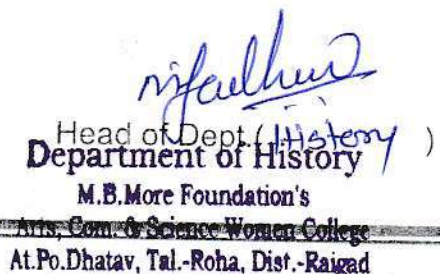 Head of Dept. (History)
Department of History
M.B.More Foundation's
Arts, Com. & Science Women College
At.Po.Dhatav, Tal.-Roha, Dist.-Raigad